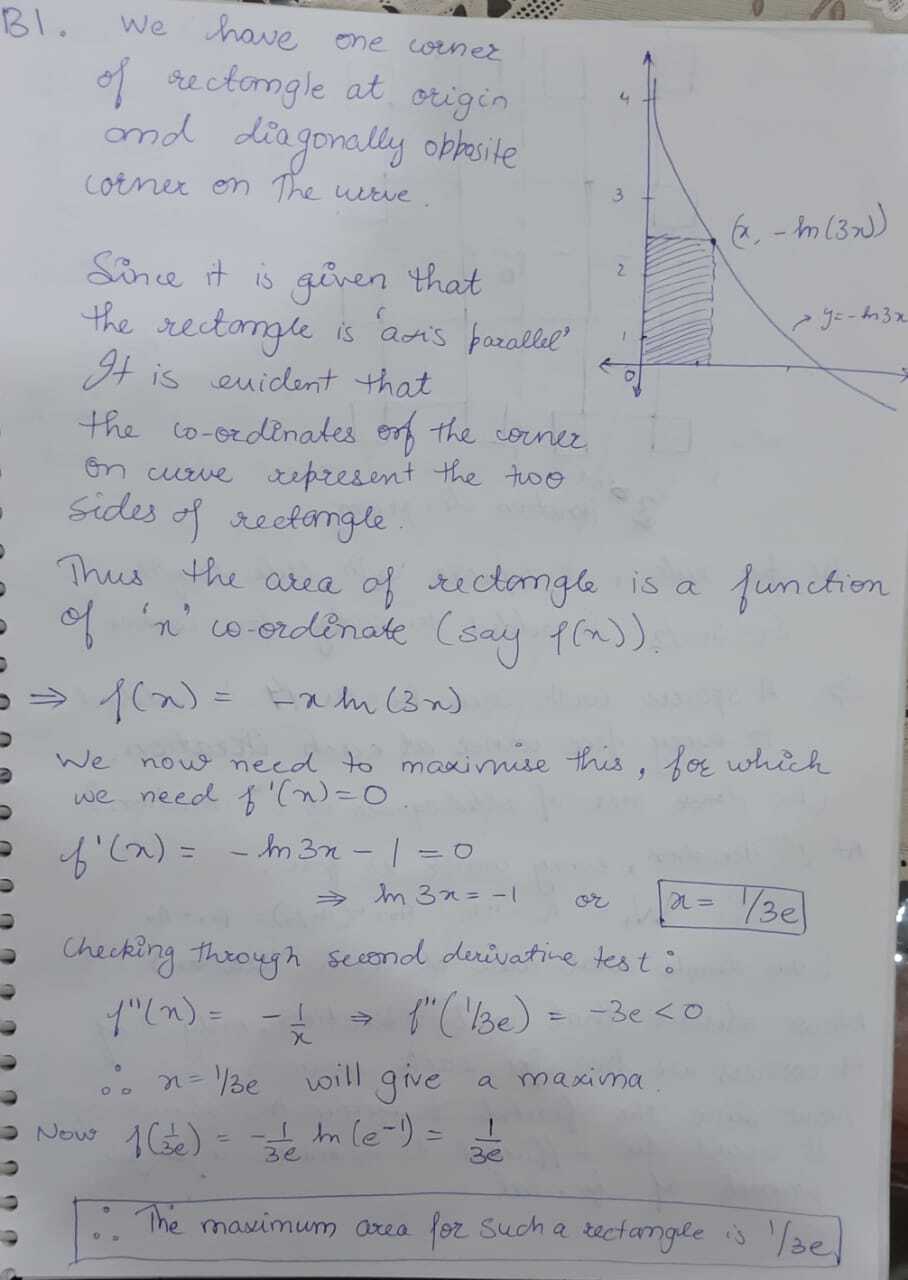 B1. We have one corner
of rectangle at origin
and diagonally opposite
corner on The curve.
4
3
2
1
0
(x, - ln(3x))
y=-ln3x
Since it is given that
the rectangle is 'axis parallel'
It is evident that
the co-ordinates of the corner
on curve represent the two
sides of rectangle.
Thus the area of rectangle is a function
of 'x' co-ordinate (say f(x)).
⇒ f(x) = -x ln (3x)
We now need to maximise this, for which
we need f'(x)=0
f'(x) = - ln 3x - 1 = 0
⇒ ln 3x = -1 or x = 1/3e
Checking through second derivative test:
f"(x) = -1/x ⇒ f"(1/3e) = -3e < 0
∴ x = 1/3e will give a maxima.
Now f(1/3e) = -1/3e ln (e⁻¹) = 1/3e
∴ The maximum area for such a rectangle is 1/3e